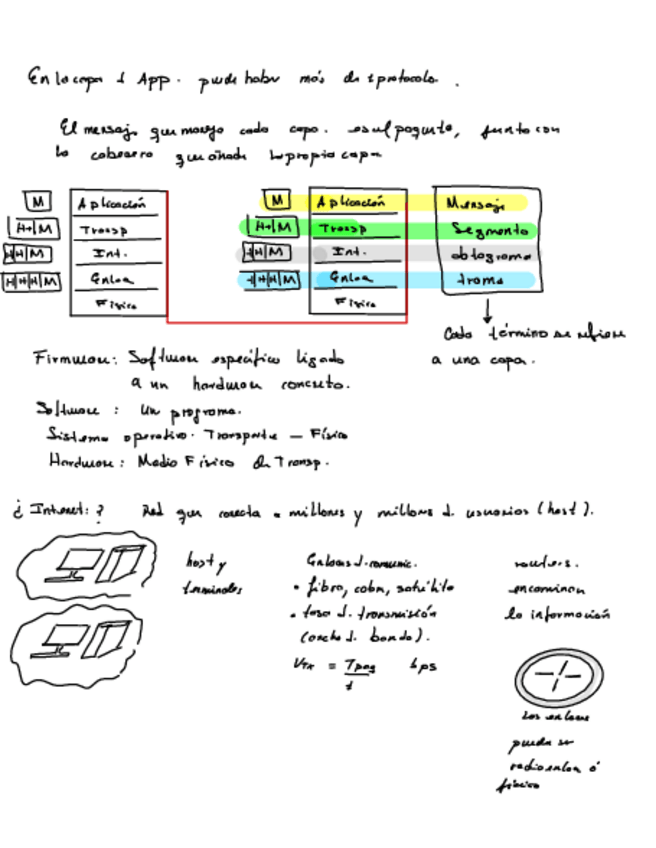 En la capa d App. puede haber más de 1 protocolo.
El mensaje que maneja cada capa. es el paquete, junto con
la cabecera que añade la propia capa
M Aplicación M Aplicación Mensaje
H+|M Transp H+|M Transp Segmento
H|H|M Int. H|H|M Int. datagrama
H|H|H|M Enlace H|H|H|M Enlace trama
Física Física
Cada término se refiere
a una capa.
Firmware: Software específico ligado
a un hardware concreto.
Software: Un programa.
Sistema operativo. Transporte — Físico
Hardware: Medio Físico de Transp.
¿Internet:? Red que conecta a millones y millones d. usuarios (host).
host y
terminales
Enlaces d. comunic.
• fibra, cobre, satélite
• tasa d. transmisión
(ancho d. banda).
VTX = Tpaq / t bps
routers.
encaminan
la información
Los enlaces
pueden ser
radioenlace ó
físico